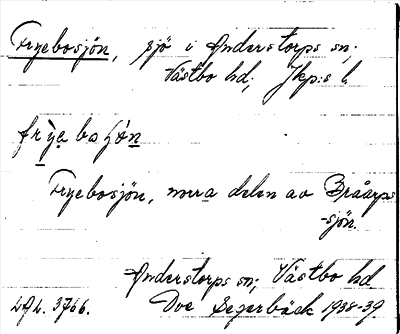 Fryebosjön, sjö i Anderstorps sn;
Västbo hd; Jkp:s l.
frỳa ba ʃǿn
Fryebosjön, norra delen av Bråarps
-sjön.
Anderstorps sn; Västbo hd
ULA. 3766. Dve Segerbäck 1938-39.